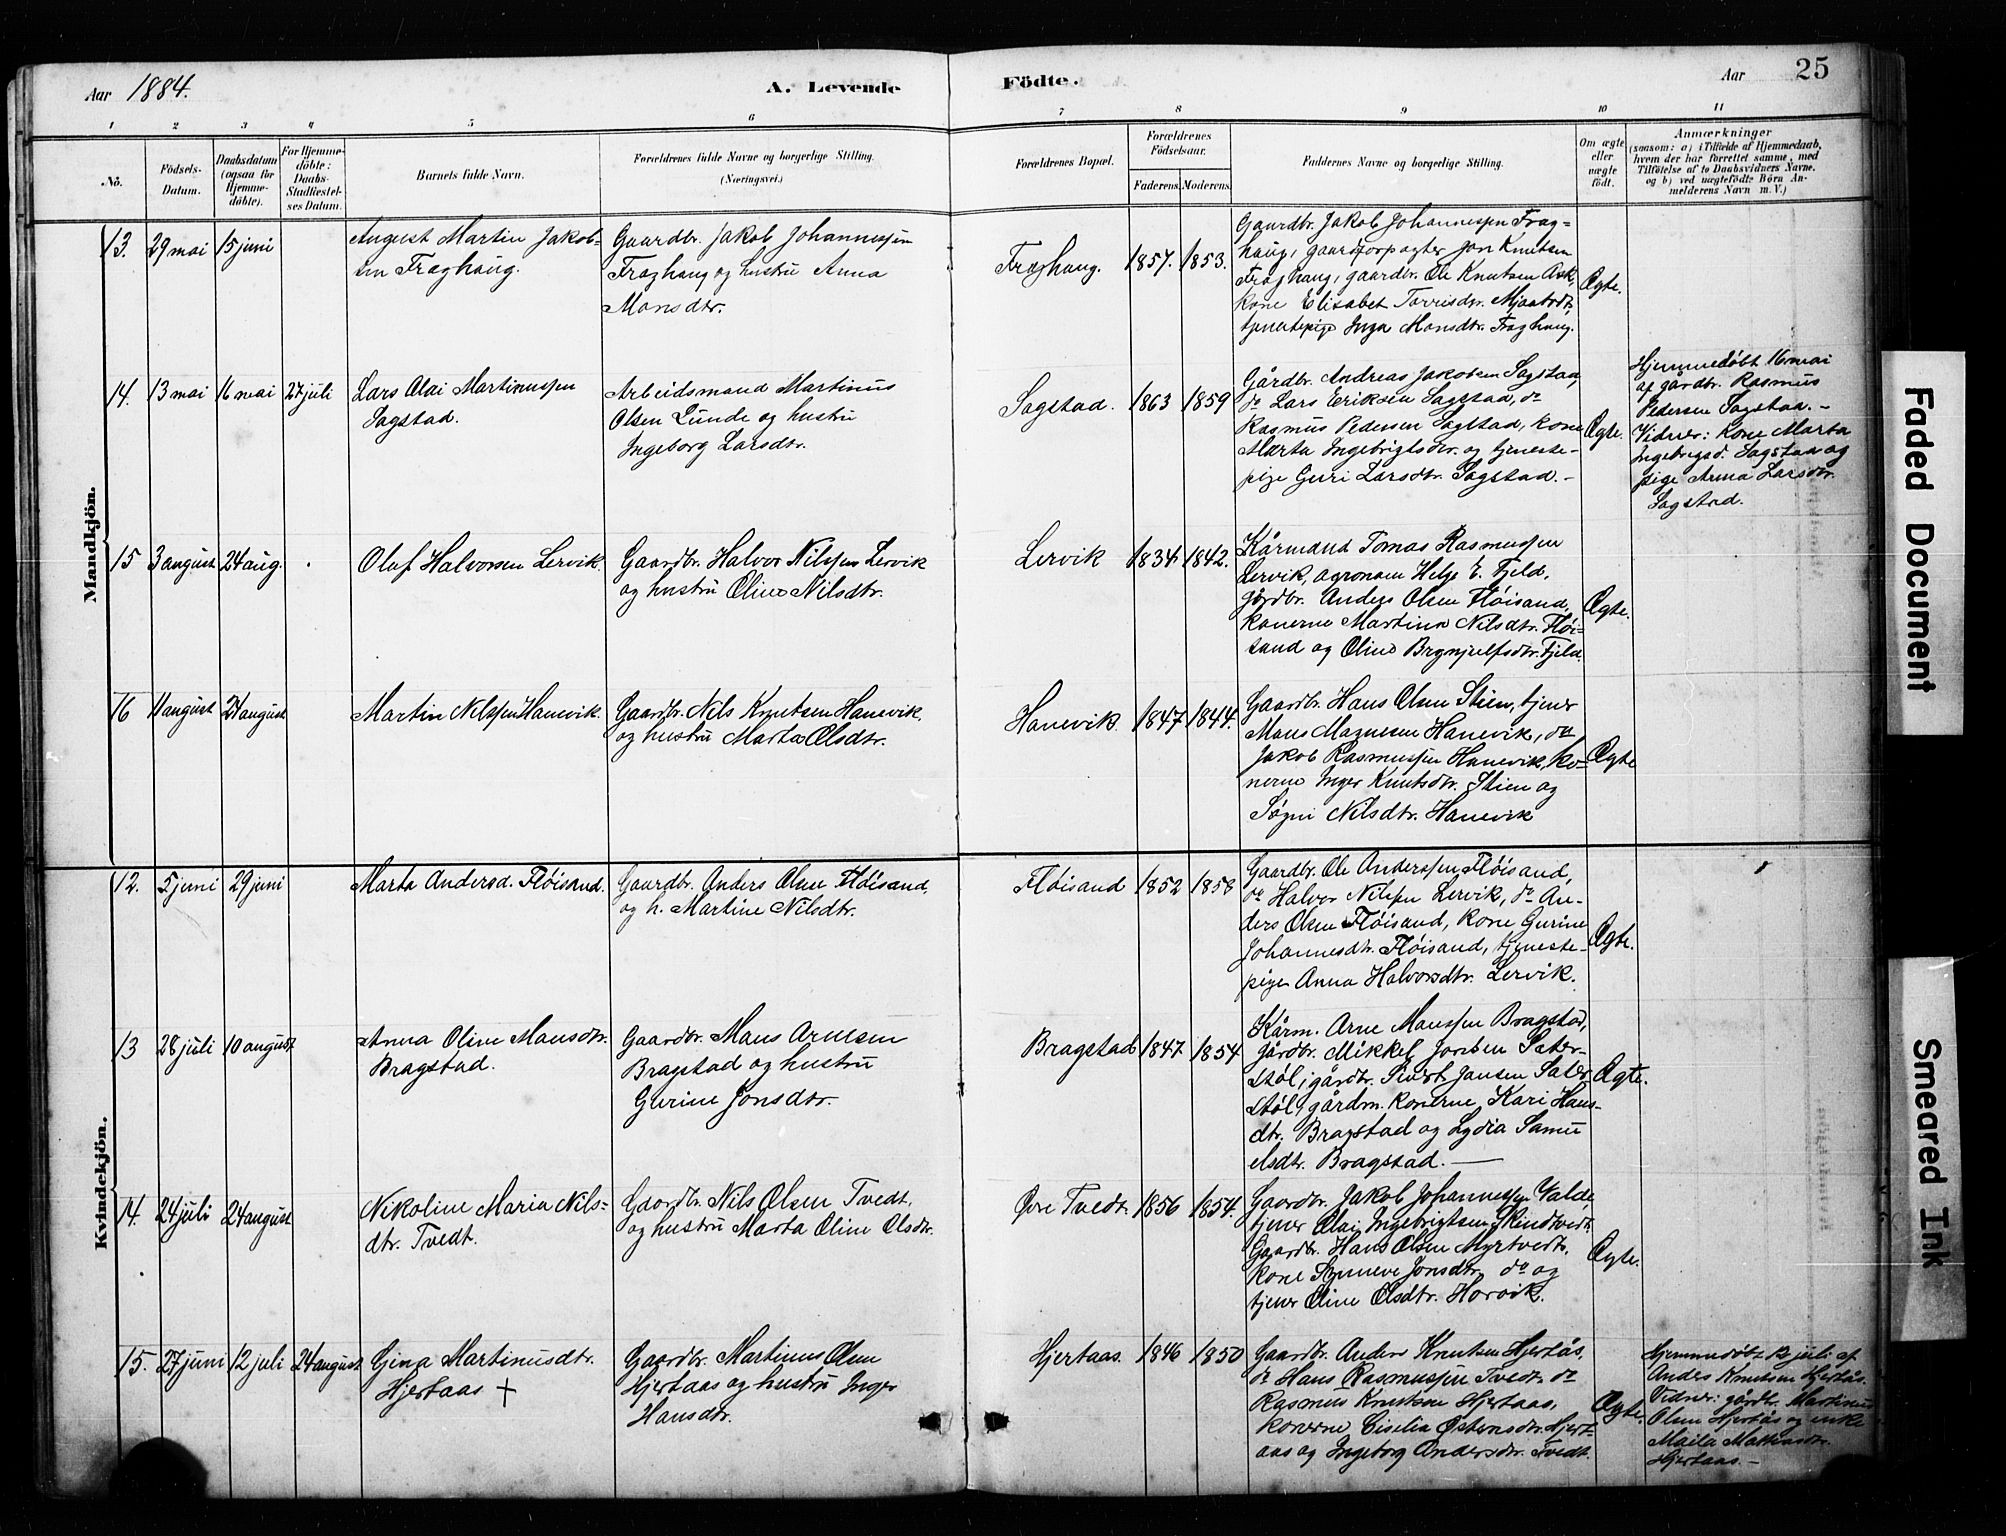 Aar 1884.
A. Levende
Födte.
Aar
25
1 2 3 4 5 6 7 8 9 10 11
No.
Födsels-
Datum.
Daabsdatum
(ogsaa for
Hjemme-
döbte).
For Hjemme-
döbte:
Daabs-
Stadfæstel-
ses Datum.
Barnets fulde Navn.
Forældrenes fulde Navne og borgerlige Stilling.
(Næringsvei.)
Forældrenes Bopæl.
Forældrenes
Födselsaar.
Faderens. Moderens.
Faddernes Navne og borgerlige Stilling.
Om ægte
eller
uægte
födt.
Anmærkninger
(saasom: a) i Tilfælde af Hjemmedaab,
hvem der har forrettet samme, med
Tilföielse af to Daabsvidners Navne,
og b) ved uægtefödte Börn An-
melderens Navn m. V.)
Mandkjön.
13. 29 mai 15 juni
August Martin Jakob-
sen Fraghaug.
Gaardbr. Jakob Johannessen
Fraghaug og hustru Anna
Monsdtr.
Fraghaug. 1857. 1853.
Gaardbr. Jakob Johannessen Frag-
haug, gaardforpagter Jon Knutsen
Fraghaug, gaardbr. Ole Knutsen Ask,
kone Elisabet Torrisdtr. Mjaatvdt,
tjenestepige Inga Monsdtr. Fraghaug.
Ægte.
14. 13 mai 16 mai 27 juli
Lars Olai Martinussen
Sagstad.
Arbeidsmand Martinus
Olsen Lunde og hustru
Ingeborg Larsdtr.
Sagstad. 1863 1859
Gårdbr. Andreas Jakobsen Sagstad,
do Lars Eriksen Sagstad, do
Rasmus Pedersen Sagstad, kone
Marta Ingebrigtsdtr. og tjeneste-
pige Guri Larsdtr. Sagstad. -
Ægte.
Hjemmedöbt 16 mai
af gårdbr. Rasmus
Pedersen Sagstad. -
Vidner: kone Marta
Ingebrigsd. Sagstad og
pige Anna Larsdtr.
Sagstad.
15 3 august 24 aug.
Oluf Halvorsen Lervik.
Gaardbr. Halvor Nilssen Lervik
og hustru Oline Nilsdtr.
Lervik 1834 1842.
Kårmand Tomas Rasmussen
Lervik, agronom Helge E. Fjeld,
gårdbr. Anders Olsen Flöisand,
konerne Martina Nilsdtr. Flöi-
sand og Oline Brynjulfsdtr. Fjeld.
Ægte.
16 11 august 24 august
Martin Nilssen Hanevik.
Gaardbr. Nils Knutsen Hanevik
og hustru Marta Olsdtr.
Hanevik. 1847 1844.
Gaardbr. Hans Olsen Stien, tjener
Mons Magnesen Hanevik, do
Jakob Rasmussen Hanevik, ko-
nerne Inger Knutsdtr. Stien og
Søgni Nilsdtr. Hanevik
Ægte
Kvindekjön.
12. 5 juni 29 juni
Marta Andersd. Flöisand.
Gaardbr. Anders Olsen Flöisand,
og h. Martine Nilsdtr.
Flöisand 1852 1858
Gaardbr. Ole Anderssen Flöisand,
do Halvor Nilssen Lervik, do An-
ders Olsen Flöisand, kone Gurine
Johannesdtr. Flöisand, tjeneste-
pige Anna Halvorsdtr. Lervik.
Ægte.
13 28 juli 10 august
Anna Oline Monsdtr.
Bragstad.
Gaardbr. Mons Arnesen
Bragstad og hustru
Gurine Jonsdtr.
Bragstad 1847 1854
Kårm. Arne Monssen Bragstad,
gårdbr. Mikkel Jonsen Sater-
stöl, gårdbr. Sivert Jansen Sater-
stöl, gårdm. konerne Kari Hans-
dtr. Bragstad og Lydia Samu
elsdtr. Bragstad. —
Ægte.
14. 24 juli 24 august
Nikoline Maria Nils-
dtr. Tvedt.
Gaardbr. Nils Olsen Tvedt,
og hustru Marta Oline Olsdtr.
Øvre Tvedt. 1856 1854.
Gaardbr. Jakob Johannessen Valde,
tjener Olai Ingebrigtsen Rindtvedt,
Gaardbr. Hans Olsen Myrtvedt,
kone Synneve Jonsdtr. do og
tjener Oline Olsdtr. Horvik.
Ægte.
15. 27 juni 12 juli 24 august
Gina Martinusdtr.
Hjertaas +
Gaardbr. Martinus Olsen
Hjertaas og hustru Inger
Hansdtr.
Hjertaas. 1846 1850
Gaardbr. Anders Knutsen Hjertås,
do Hans Rasmussen Tvedt, do
Rasmus Knutsen Hjertaas,
konerne Cisilia Østensdtr. Hjert-
aas og Ingeborg Andersdtr. Tvedt.
Ægte.
Hjemmedöbt 12 juli af
Anders Knutsen Hjertås.
Vidner: gårdbr. Martinus
Olsen Hjertås og enke
Maila
Hjertaas. -
Faded Document
Smeared Ink